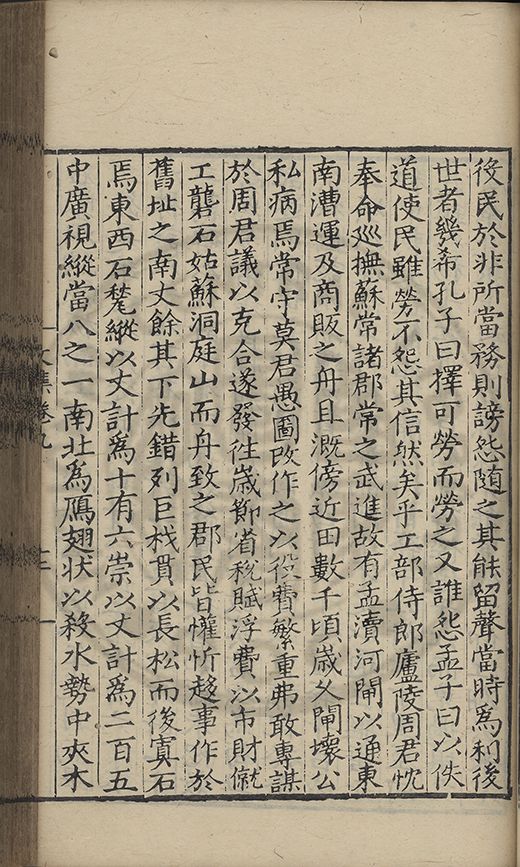 役民於非所當務則謗怨隨之其能留聲當時爲利後
世者幾希孔子曰擇可勞而勞之又誰怨孟子曰以佚
道使民雖勞不怨其信然矣乎工部侍郎廬陵周君忱
奉命巡撫蘇常諸郡常之武進故有孟瀆河閘以通東
南漕運及商販之舟且溉傍近田數千頃歲久閘壞公
私病焉常守莫君愚圖改作之以役費繁重弗敢專謀
於周君議以克合遂發往歲節省稅賦浮費以市財僦
工礱石姑蘇洞庭山而舟致之郡民皆懽忻趍事作於
舊址之南丈餘其下先錯列巨栈貫以長松而後寘石
焉東西石甃縱以丈計爲十有六崇以丈計爲二百五
中廣視縱當八之一南北爲鴈翅狀以殺水勢中夾木
文集卷九